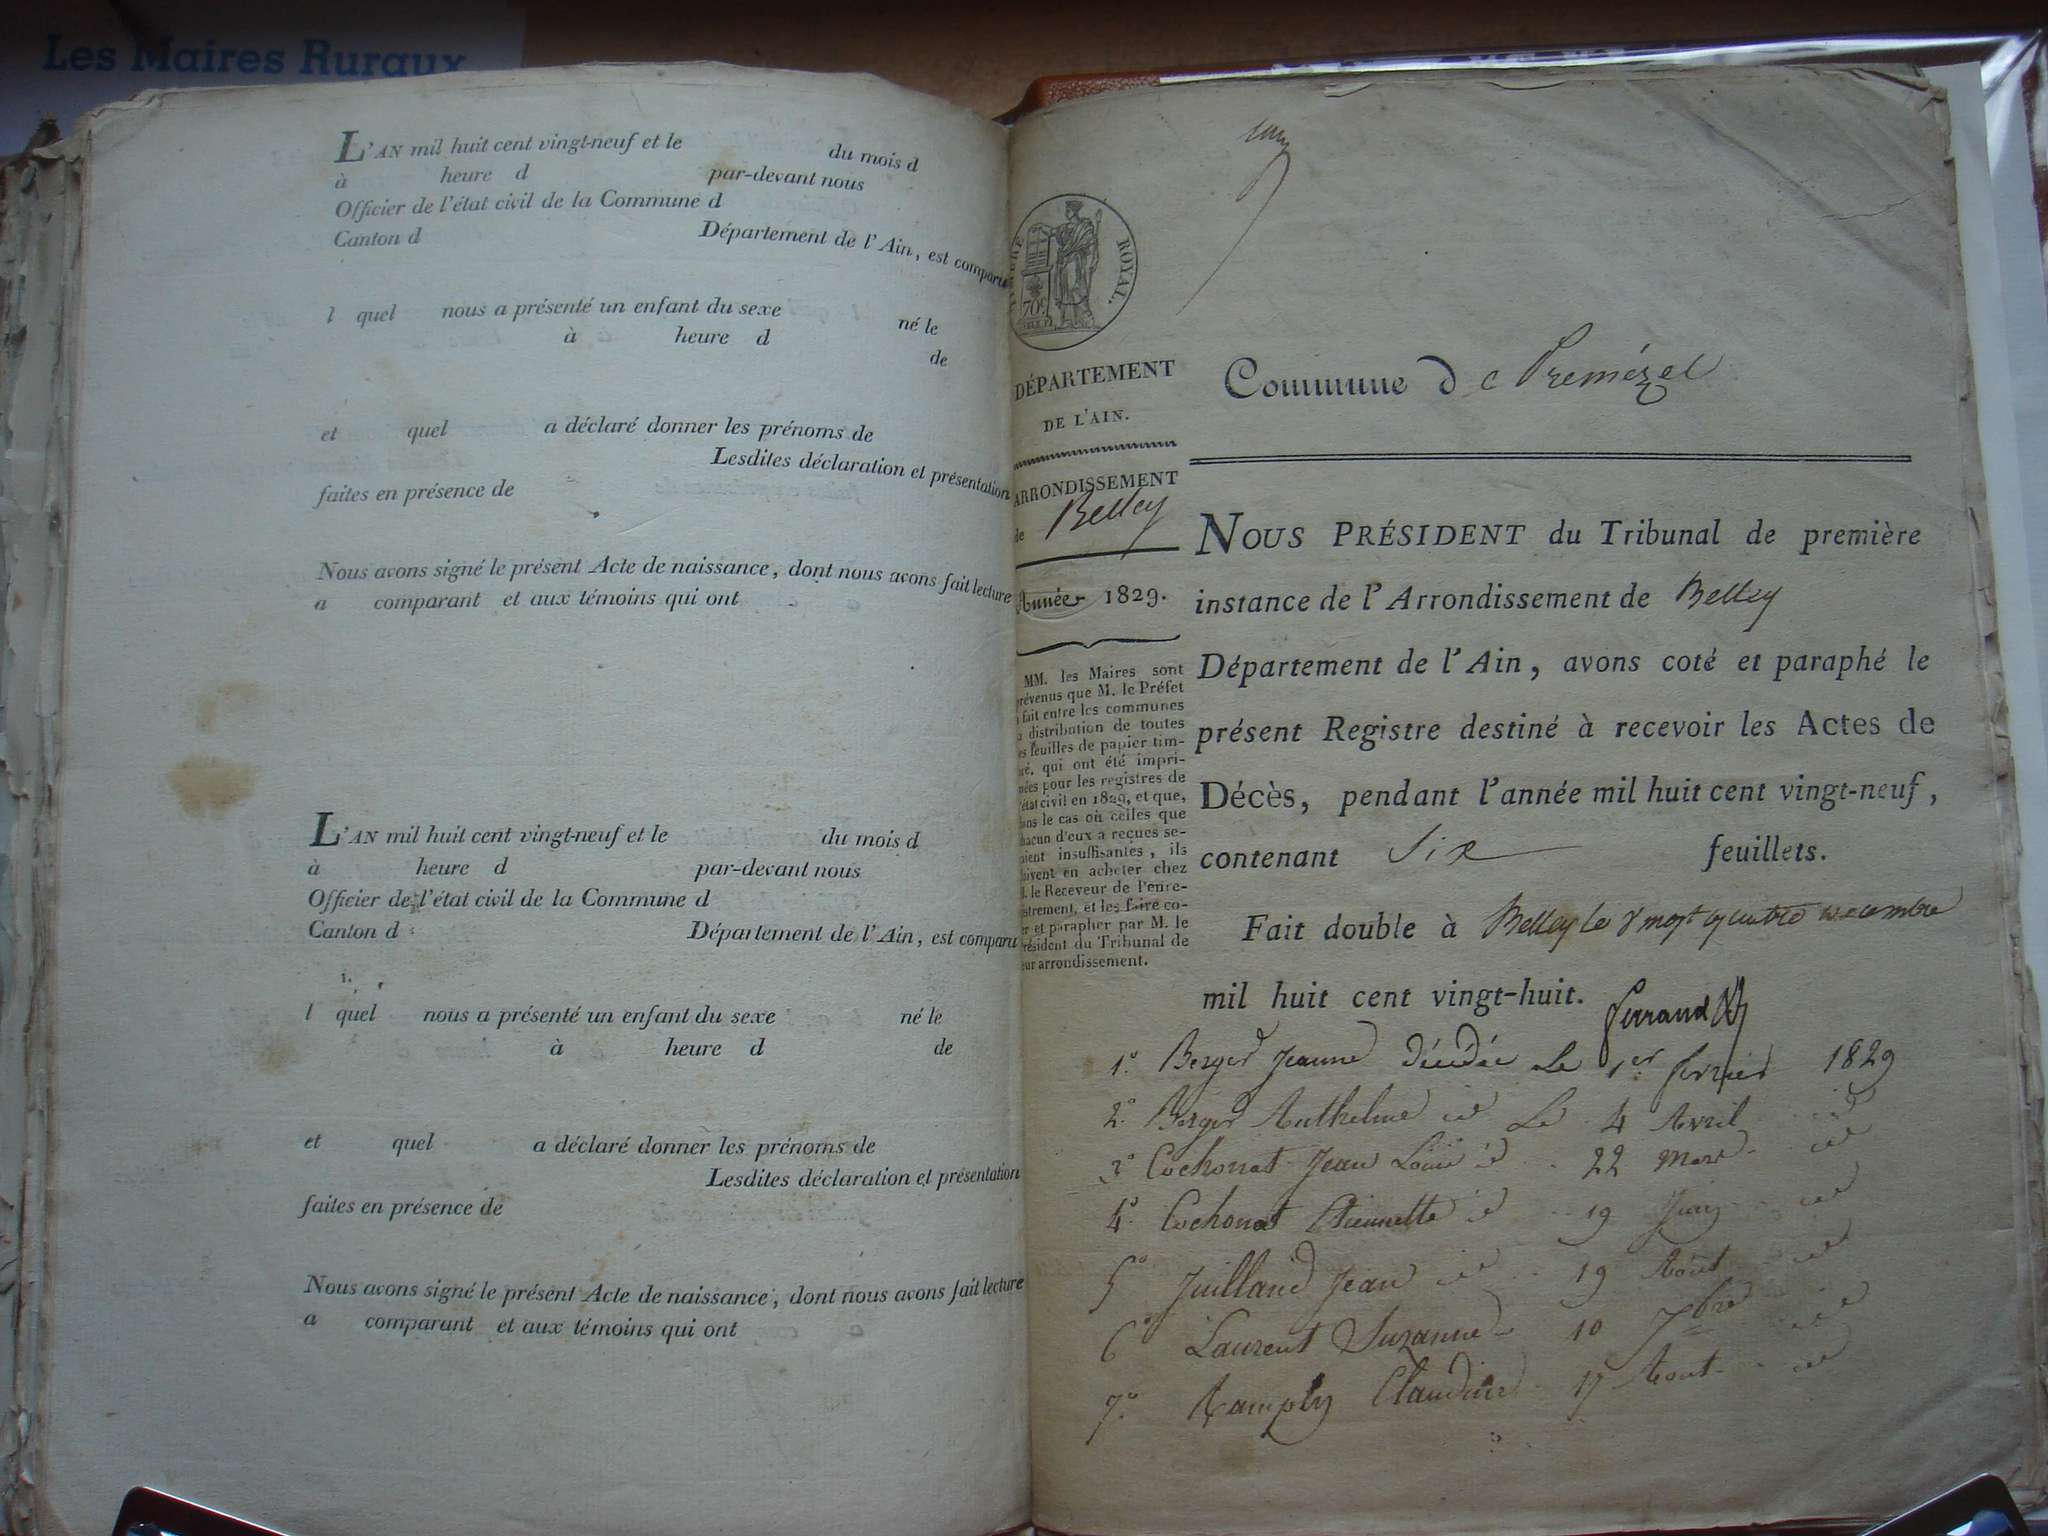 Les Maires Ruraux
L'AN mil huit cent vingt-neuf et le du mois d
à heure d par-devant nous
Officier de l'état civil de la Commune d
Canton d Département de l'Ain, est comparu
l quel nous a présenté un enfant du sexe né le
à heure d de
et quel a déclaré donner les prénoms de
Lesdites déclaration et présentation
faites en présence de
Nous avons signé le présent Acte de naissance, dont nous avons fait lecture
a comparant et aux témoins qui ont
L'AN mil huit cent vingt-neuf et le du mois d
à heure d par-devant nous
Officier de l'état civil de la Commune d
Canton d Département de l'Ain, est comparu
l quel nous a présenté un enfant du sexe né le
à heure d de
et quel a déclaré donner les prénoms de
Lesdites déclaration et présentation
faites en présence de
Nous avons signé le présent Acte de naissance, dont nous avons fait lecture
a comparant et aux témoins qui ont
ROYAL.
70c
DÉPARTEMENT
DE L'AIN.
ARRONDISSEMENT
de Belley
Année 1829.
MM. les Maires sont
révenus que M. le Préfet
fait entre les communes
a distribution de toutes
es feuilles de papier tim-
ré, qui ont été impri-
mées pour les registres de
l'état civil en 1829, et que,
ans le cas où celles que
hacun d'eux a reçues se-
aient insuffisantes, ils
oivent en acheter chez
M. le Receveur de l'enre-
istrement, et les faire co-
er et parapher par M. le
résident du Tribunal de
eur arrondissement.
Commune de Premézel
NOUS PRÉSIDENT du Tribunal de première
instance de l'Arrondissement de Belley
Département de l'Ain, avons coté et paraphé le
présent Registre destiné à recevoir les Actes de
Décès, pendant l'année mil huit cent vingt-neuf,
contenant Six feuillets.
Fait double à Belley le vingt quatre décembre
mil huit cent vingt-huit.
1° Berger Jeanne décédée Le 1er fevrier 1829
2° Berger Anthelme id Le 4 Avril id
3° Cochonat Jean Louis id 22 Mars id
4° Cochonat Etiennette id 19 Juin id
5° Juilland Jean id 19 Août id
6° Laurent Suzanne 10 7bre id
7° Claudine 17 Aout id